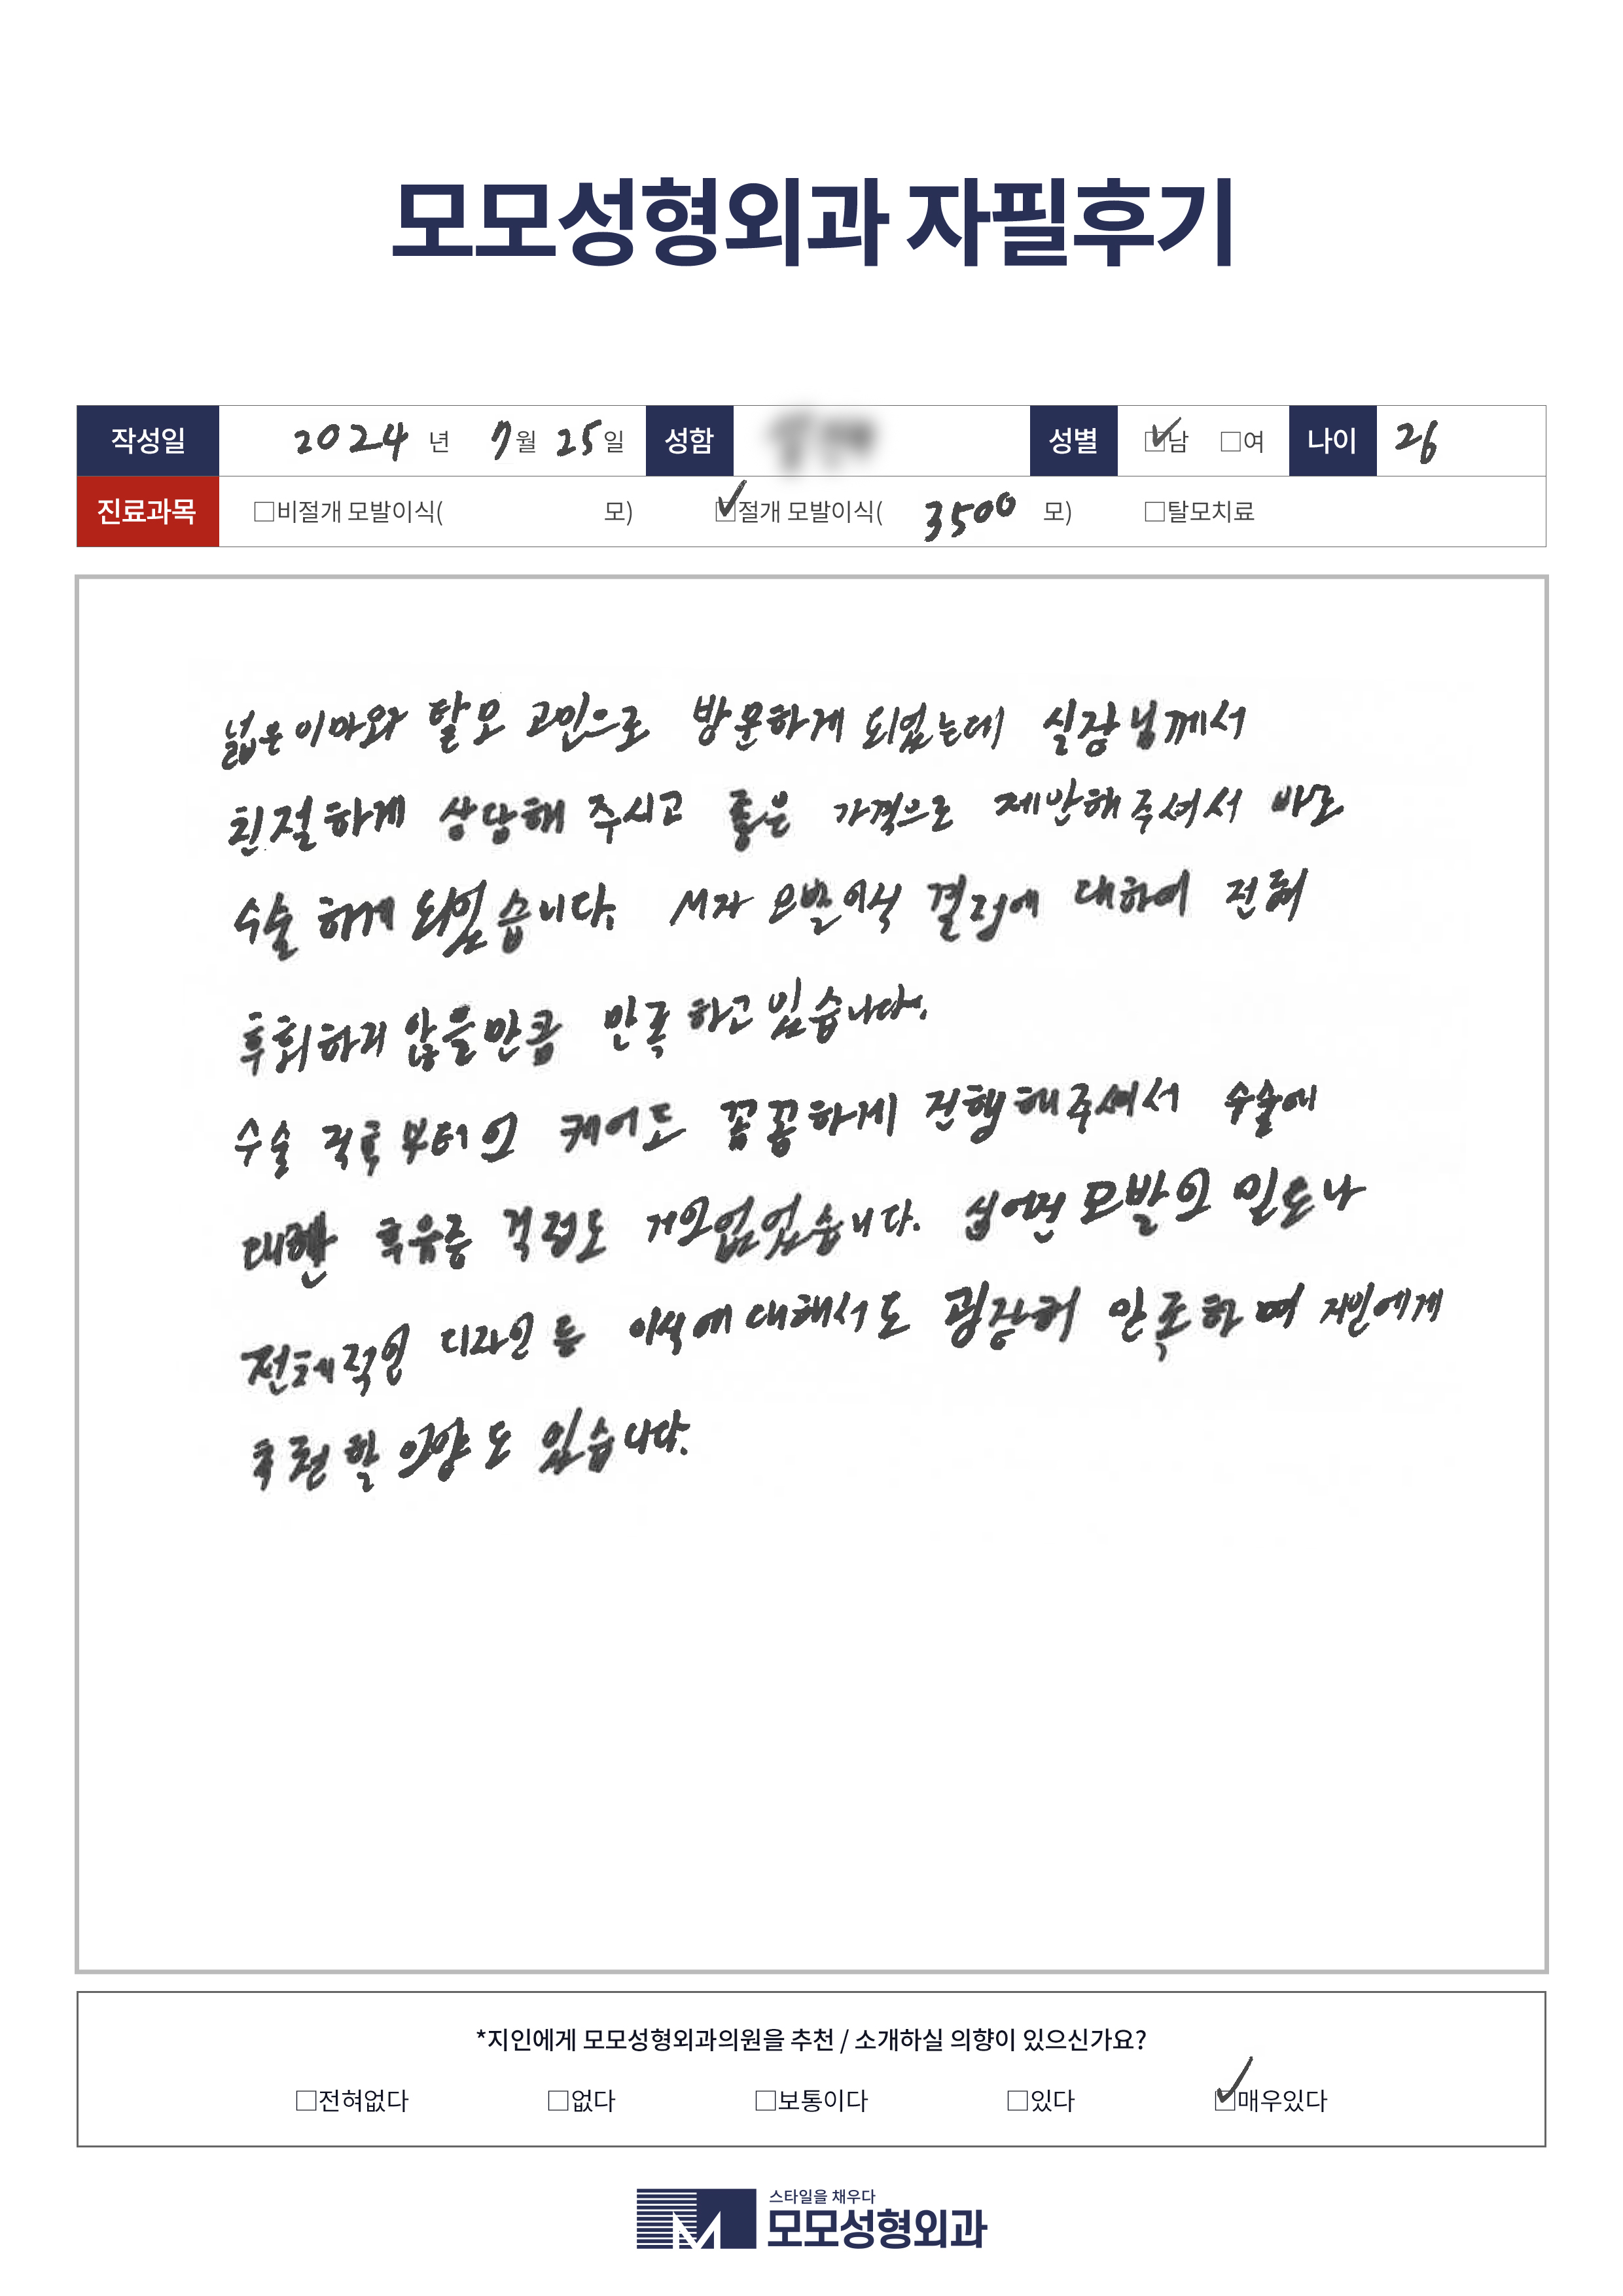 모모성형외과 자필후기
작성일 2024 년 7월 25일 성함 성별 ☑남 □여 나이 26
진료과목 □비절개 모발이식( 모) ☑절개 모발이식( 3500 모) □탈모치료
넓은 이마와 탈모 고민으로 방문하게 되었는데 실장님께서
친절하게 상담해 주시고 좋은 가격으로 제안해주셔서 바로
수술하게 되었습니다. 모발이식 결과에 대하여 전혀
후회하지 않을만큼 만족하고있습니다.
수술 직후부터의 케어도 꼼꼼하게 진행해주셔서 수술에
대한 후유증 걱정도 거의없었습니다. 심어면 모발의 밀도나
전체적인 디자인 등 이식에대해서도 굉장히 만족하며 지인에게
추천할 의향도 있습니다.
*지인에게 모모성형외과의원을 추천 / 소개하실 의향이 있으신가요?
□전혀없다 □없다 □보통이다 □있다 ☑매우있다
스타일을 채우다
모모성형외과